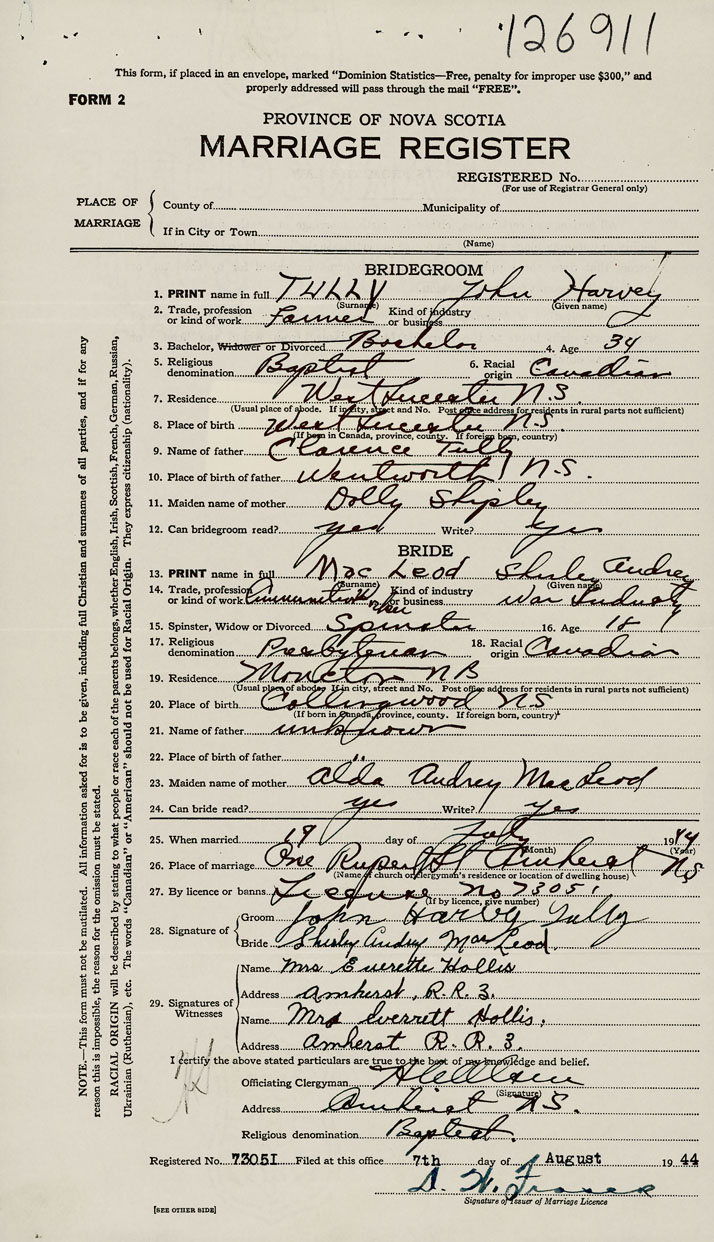 126911
This form, if placed in an envelope, marked “Dominion Statistics—Free, penalty for improper use $300,” and
properly addressed will pass through the mail “FREE”.
FORM 2
PROVINCE OF NOVA SCOTIA
MARRIAGE REGISTER
REGISTERED No.
(For use of Registrar General only)
PLACE OF MARRIAGE
County of Municipality of
If in City or Town
(Name)
BRIDEGROOM
1. PRINT name in full TULLY John Harvey
(Surname) (Given name)
2. Trade, profession or kind of work Farmer Kind of industry or business
3. Bachelor, Widower or Divorced Bachelor 4. Age 34
5. Religious denomination Baptist 6. Racial origin Canadian
7. Residence West Leicester N.S.
(Usual place of abode. If in city, street and No. Post office address for residents in rural parts not sufficient)
8. Place of birth West Leicester N.S.
(If born in Canada, province, county. If foreign born, country)
9. Name of father Clarence Tully
10. Place of birth of father Wentworth N.S.
11. Maiden name of mother Dolly Shipley
12. Can bridegroom read? yes Write? yes
BRIDE
13. PRINT name in full Mac Leod Shirley Audrey
(Surname) (Given name)
14. Trade, profession or kind of work Ammunition worker Kind of industry or business War Industry
15. Spinster, Widow or Divorced Spinster 16. Age 18
17. Religious denomination Presbyterian 18. Racial origin Canadian
19. Residence Moncton NB
(Usual place of abode. If in city, street and No. Post office address for residents in rural parts not sufficient)
20. Place of birth Collingwood NS
(If born in Canada, province, county. If foreign born, country)
21. Name of father unknown
22. Place of birth of father "
23. Maiden name of mother Alda Audrey MacLeod
24. Can bride read? yes Write? yes
25. When married 19 day of July 1944
(Month) (Year)
26. Place of marriage One Rupert St Amherst NS
(Name of church or clergyman's residence or location of dwelling house)
27. By licence or banns License No 73051
(If by licence, give number)
28. Signature of
Groom John Harvey Tully
Bride Shirley Audrey MacLeod.
29. Signatures of Witnesses
Name Mrs Everette Hollis
Address Amherst, R.R.3.
Name Mrs Everett Hollis.
Address Amherst R.R.3.
I certify the above stated particulars are true to the best of my knowledge and belief.
Officiating Clergyman
(Signature)
Address Amherst N.S.
Religious denomination Baptist.
Registered No. 73051 Filed at this office 7th day of August 1944
Signature of Issuer of Marriage Licence
[SEE OTHER SIDE]
NOTE.—This form must not be mutilated. All information asked for is to be given, including full Christian and surnames of all parties, and if for any
reason this is impossible, the reason for the omission must be stated.
RACIAL ORIGIN will be described by stating to what people or race each of the parents belongs, whether English, Irish, Scottish, French, German, Russian,
Ukrainian (Ruthenian), etc. The words “Canadian” or “American” should not be used for Racial Origin. They express citizenship (nationality).